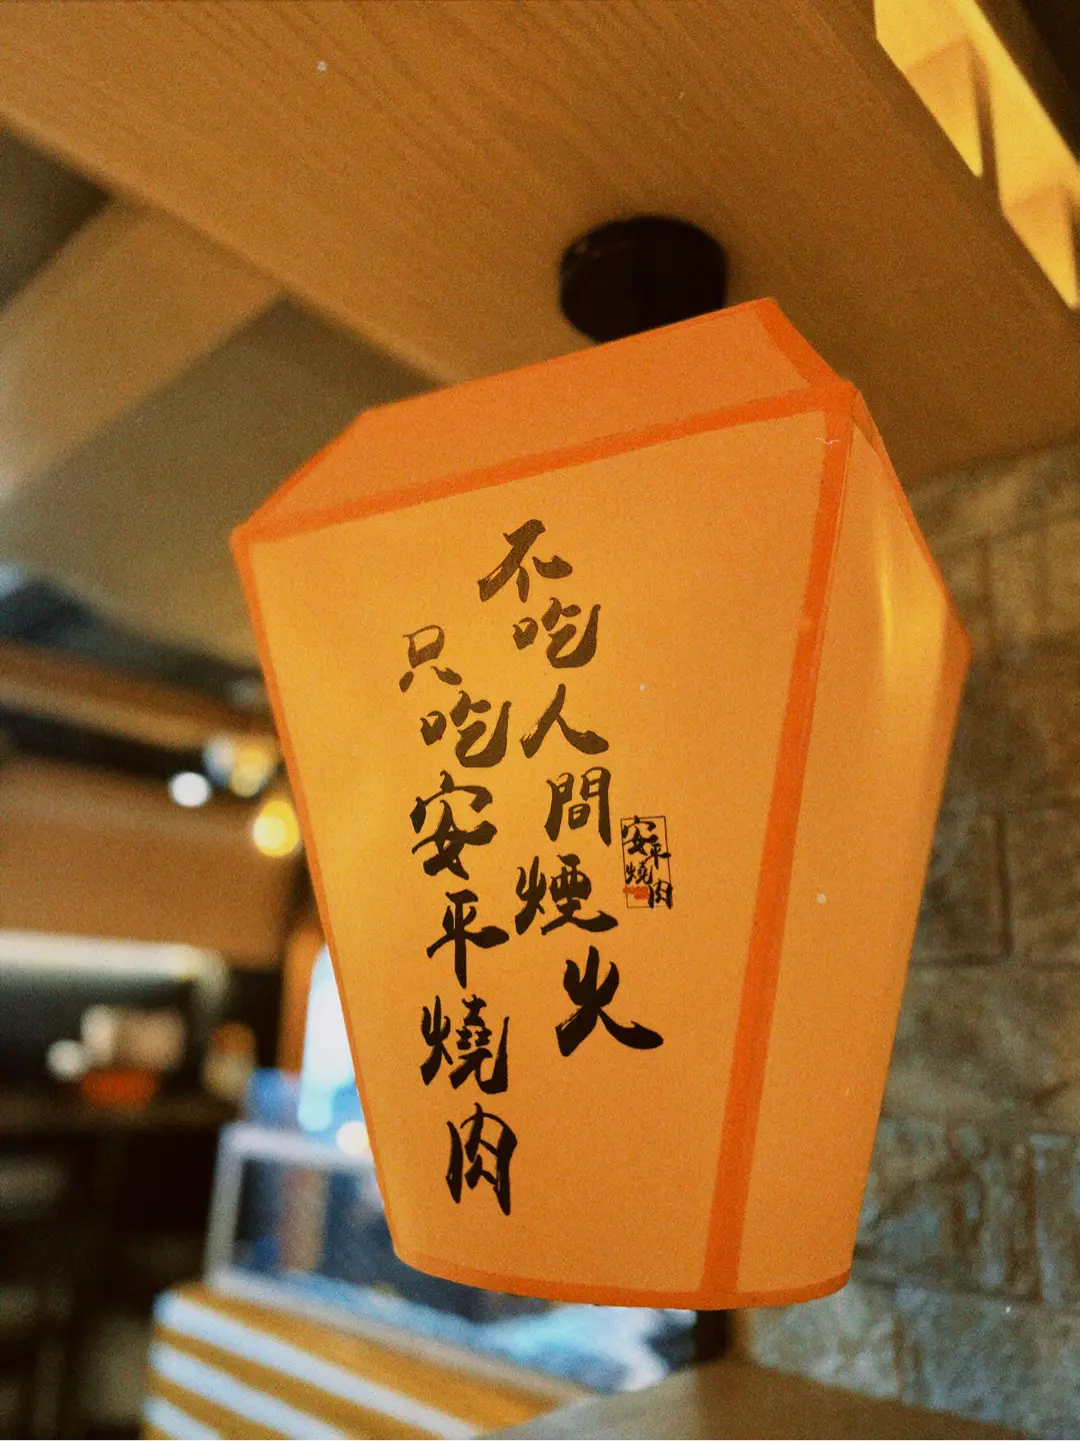 不吃人間煙火
只吃安平燒肉
安平
燒肉